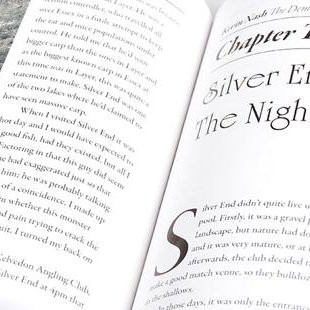 control controller, who travelled all
over Essex in a futile attempt to keep
the rat and mice population under
control. He told me that he'd seen
bigger carp than the ones in Layer and
as the biggest known carp in Essex at
this time was in Layer, this was quite a
statement to make. Silver End was one
of the two lakes where he'd claimed to
have seen massive carp.
When I visited Silver End it was
hot day and I would have expected to
good fish, had they existed, but all I
Factoring in that this guy did seem
he had exaggerated just so that
him; he was probably talking
of a coincidence. I made up
n whether this monster
d pain trying to crack the
uit, I turned my back on
Kelvedon Angling Club,
Silver End at 4pm that
Kevin Nash The Demi
Chapter T
Silver En
The Nigh
Silver End didn't quite live u
pool. Firstly, it was a gravel p
landscape, but nature had do
and it was very mature, or at l
afterwards, the club decided t
make a good match venue, so they bulldoz
in the shallows.
In those days, it was only the entranc